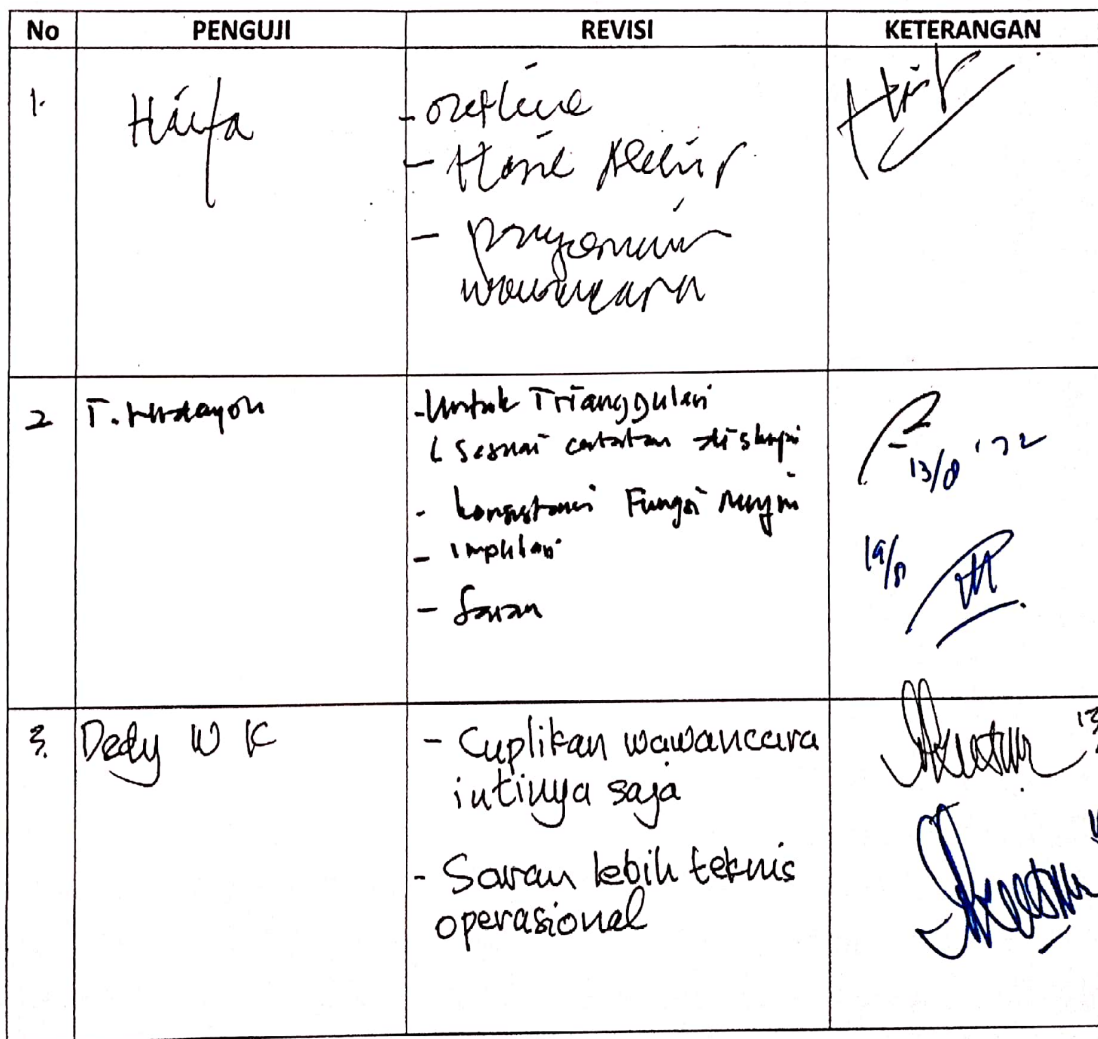 No PENGUJI REVISI KETERANGAN
1. Haifa
- outline
- Hasil
-
wawancara
2 T. Hidayat
- Untuk Trianggulasi
( Sesuai catatan di skripsi
- konsistensi Fungsi
- implikasi
- Saran
13/8 '22
19/8
3. Dedy W K
- Cuplikan wawancara
intinya saja
- Saran lebih teknis
operasional